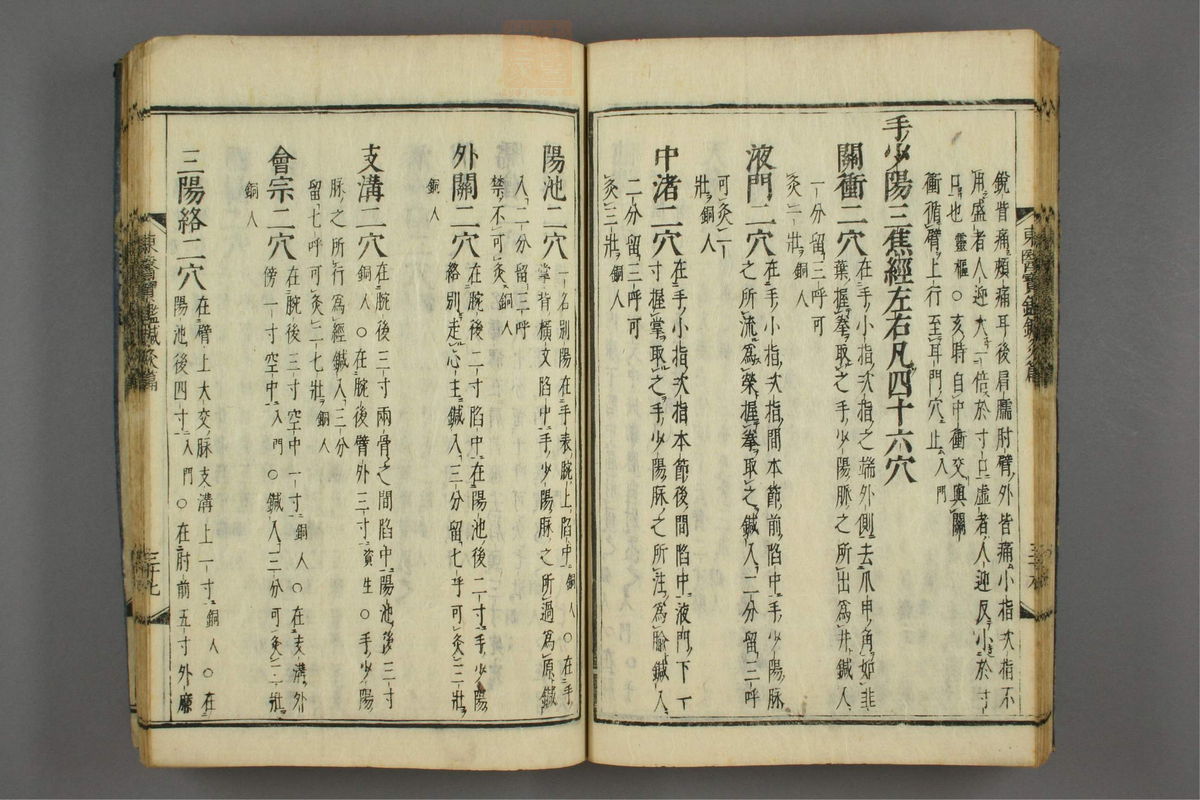 銳肯痛頰痛耳後肩臑肘臂外皆痛小指次指不
用盛者人迎大一倍於寸口虛者人迎反小於寸
口也靈樞○亥時自中衝交與關
衝循臂上行至耳門穴止入門
手少陽三焦經左右凡四十六穴
關衝二穴在手小指次指之端外側去爪甲角如韭
葉握拳取之手少陽脈之所出爲井鍼入
一分留三呼可
灸一壯銅人
液門二穴在手小指次指間本節前陷中手少陽脉
之所流爲榮握拳取之鍼入二分留三呼
可灸三
壯銅人
中渚二穴在手小指次指本節後間陷中液門下一
寸握掌取之手少陽脉之所注爲腧鍼入
二分留三呼可
灸三壯銅人
陽池二穴一名別陽在手表腕上陷中銅人○在手
掌背橫文陷中手少陽脉之所過爲原鍼
入二分留三呼
禁不可灸銅人
外關二穴在腕後二寸陷中在陽池後二寸手少陽
絡別走心主鍼入三分留七乎可灸三壯
銅人
支溝二穴在腕後三寸兩骨之間陷中陽池後三寸
銅人○在腕後臂外三寸資生○手少陽
脉之所行爲經鍼入三分
留七呼可灸二七壯銅人
會宗二穴在腕後三寸空中一寸銅人○在支溝外
傍一寸空中入門○鍼入三分可灸三壯
銅人
三陽絡二穴在臂上大交脉支溝上一寸銅人○在
陽池後四寸入門○在肘前五寸外廉
東醫寶鑑鍼灸篇
東醫寶鑑鍼灸篇
三十七